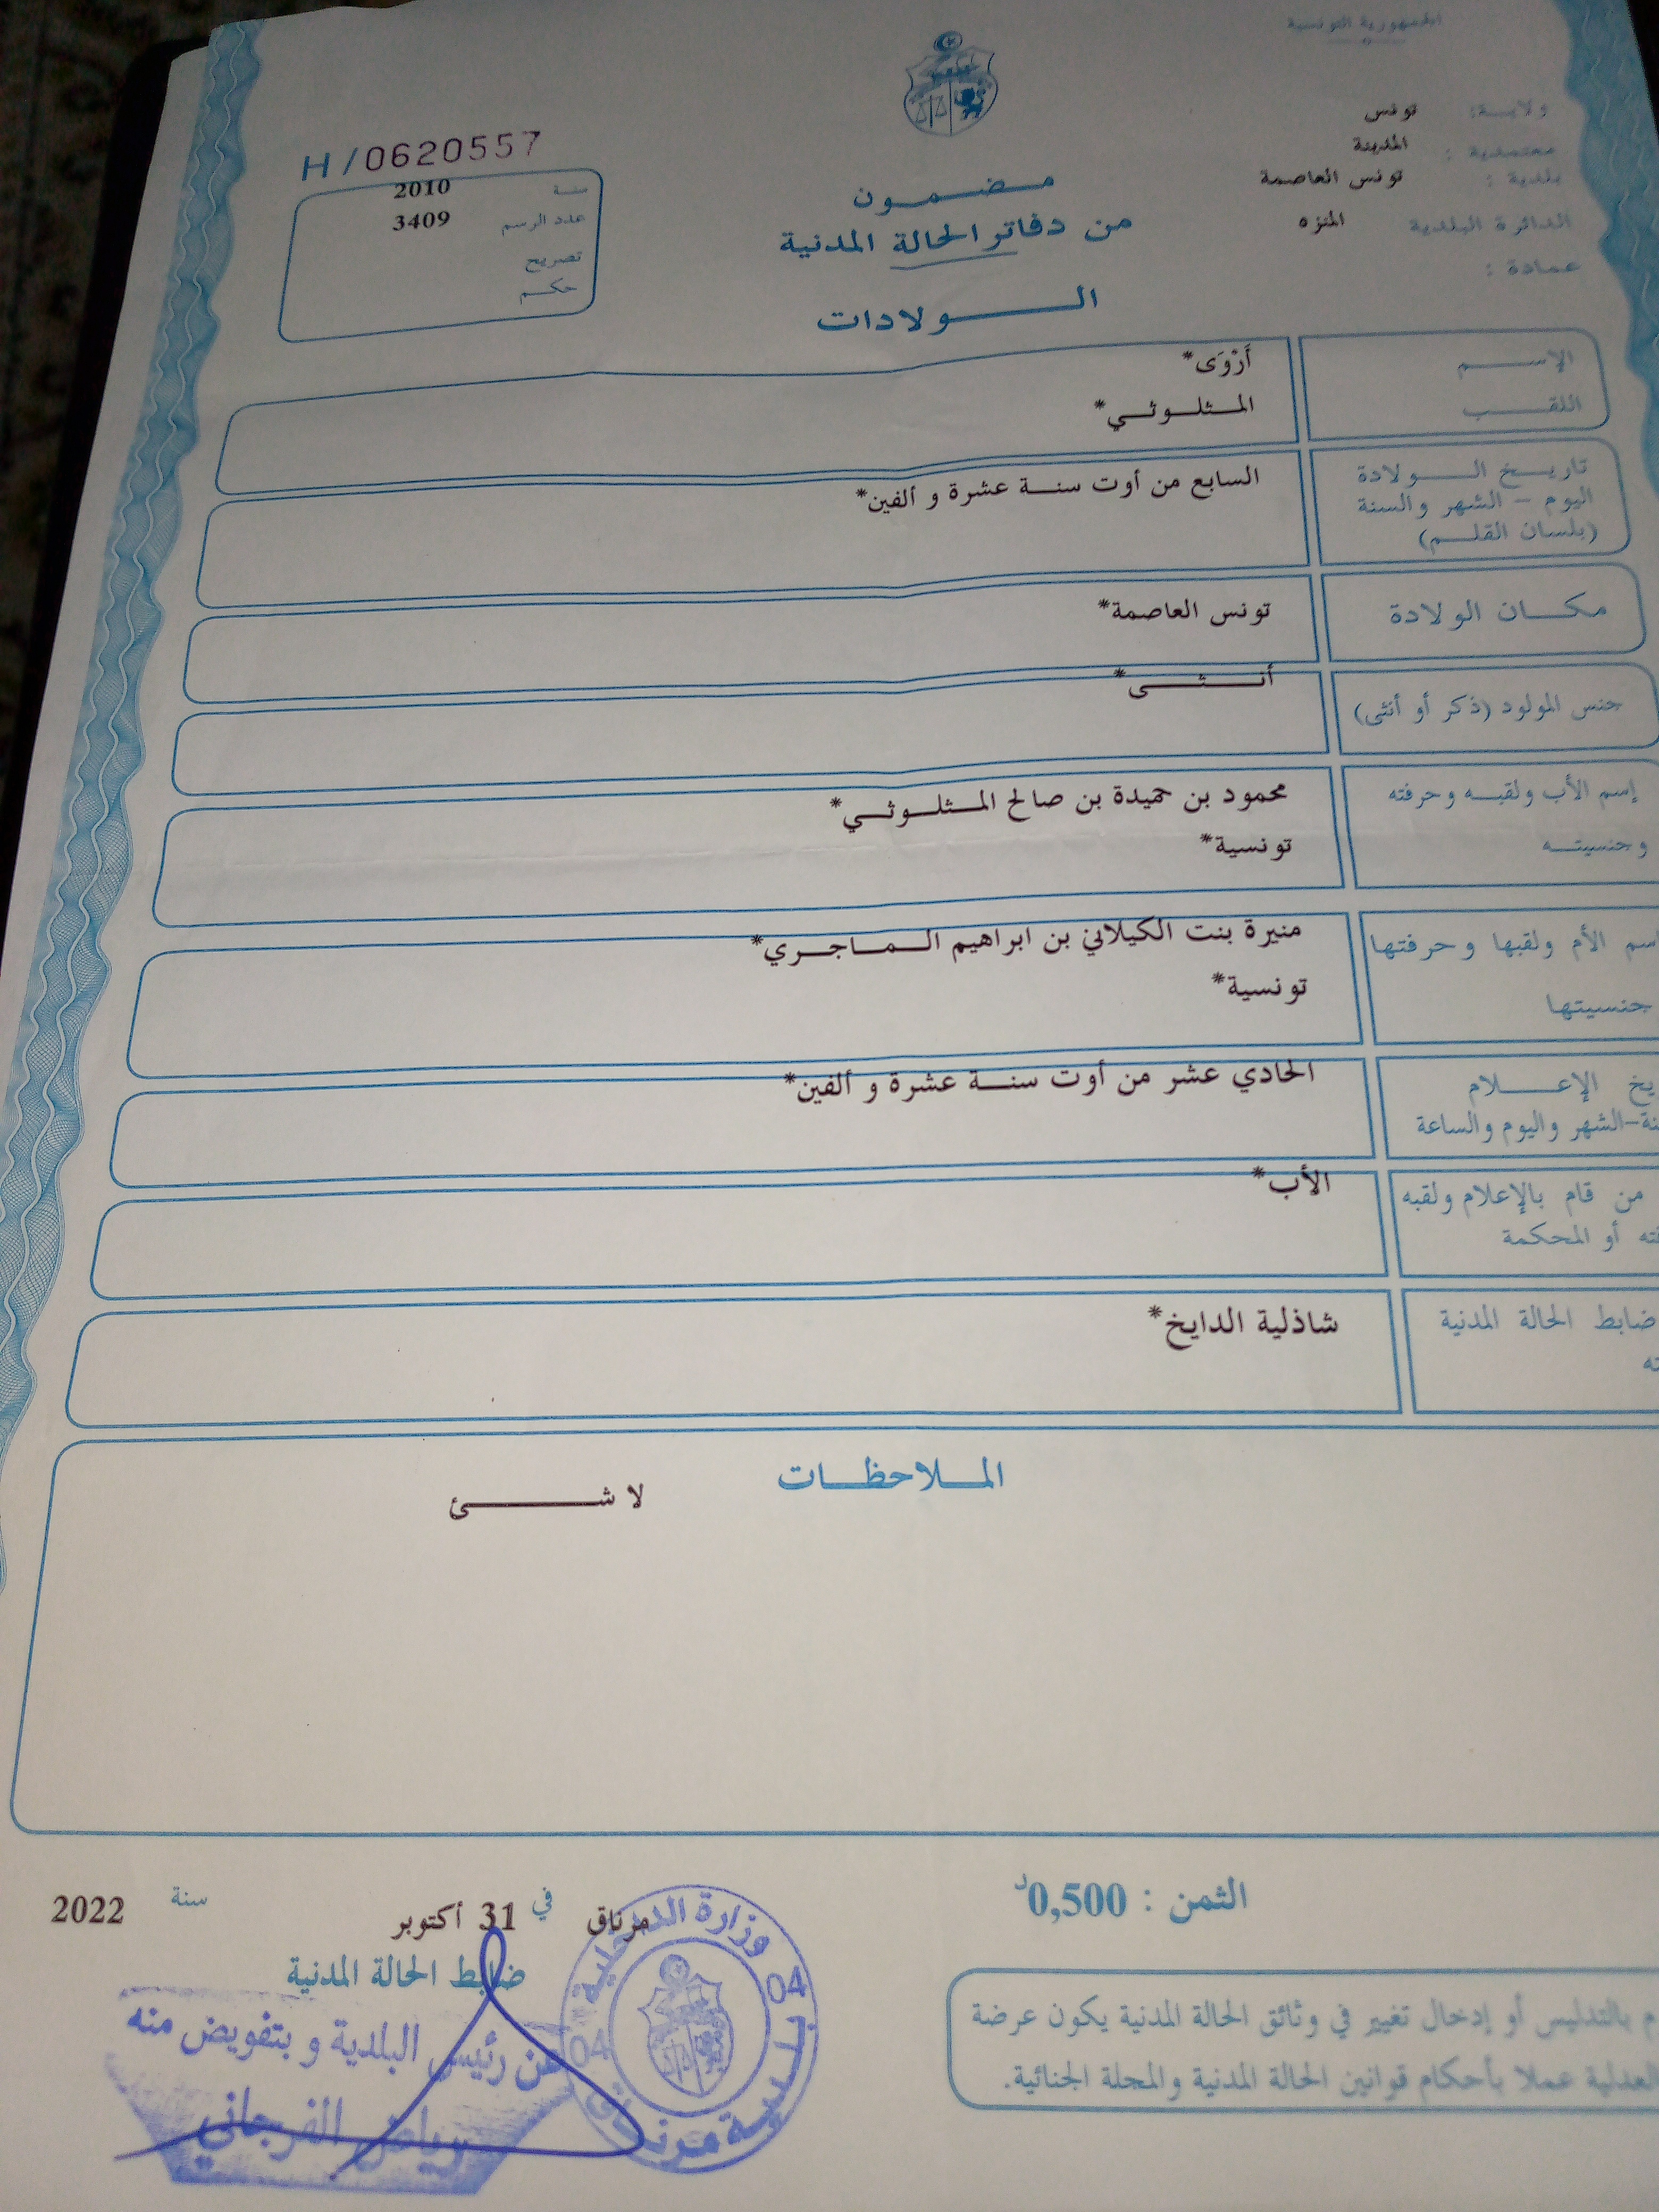 الجمهورية التونسية
ولاية: تونس
معتمدية : المدينة
بلدية : تونس العاصمة
الدائرة البلدية المنزه
عمادة :
H/0620557
سنة 2010
عدد الرسم 3409
تصريح
حكم
مضمون
من دفاتر الحالة المدنية
الولادات
الإسم أَرْوَى*
اللقب المثلوثي*
تاريخ الولادة السابع من أوت سنة عشرة و ألفين*
اليوم - الشهر والسنة
(بلسان القلم)
مكان الولادة تونس العاصمة*
جنس المولود (ذكر أو أنثى) أنثى*
إسم الأب ولقبه وحرفته محمود بن حميدة بن صالح المثلوثي*
وجنسيته تونسية*
اسم الأم ولقبها وحرفتها منيرة بنت الكيلاني بن ابراهيم الماجري*
جنسيتها تونسية*
الإعلام الحادي عشر من أوت سنة عشرة و ألفين*
الشهر واليوم والساعة
من قام بالإعلام ولقبه الأب*
أو المحكمة
ضابط الحالة المدنية شاذلية الدايخ*
الملاحظات
لا شئ
الثمن : 0,500د
مرناق في 31 أكتوبر سنة 2022
ضابط الحالة المدنية
عن رئيس البلدية و بتفويض منه
رياض الفرجاني
وزارة الداخلية
04 04
بلدية مرناق
بالتدليس أو إدخال تغيير في وثائق الحالة المدنية يكون عرضة
العدلية عملا بأحكام قوانين الحالة المدنية والمجلة الجنائية.